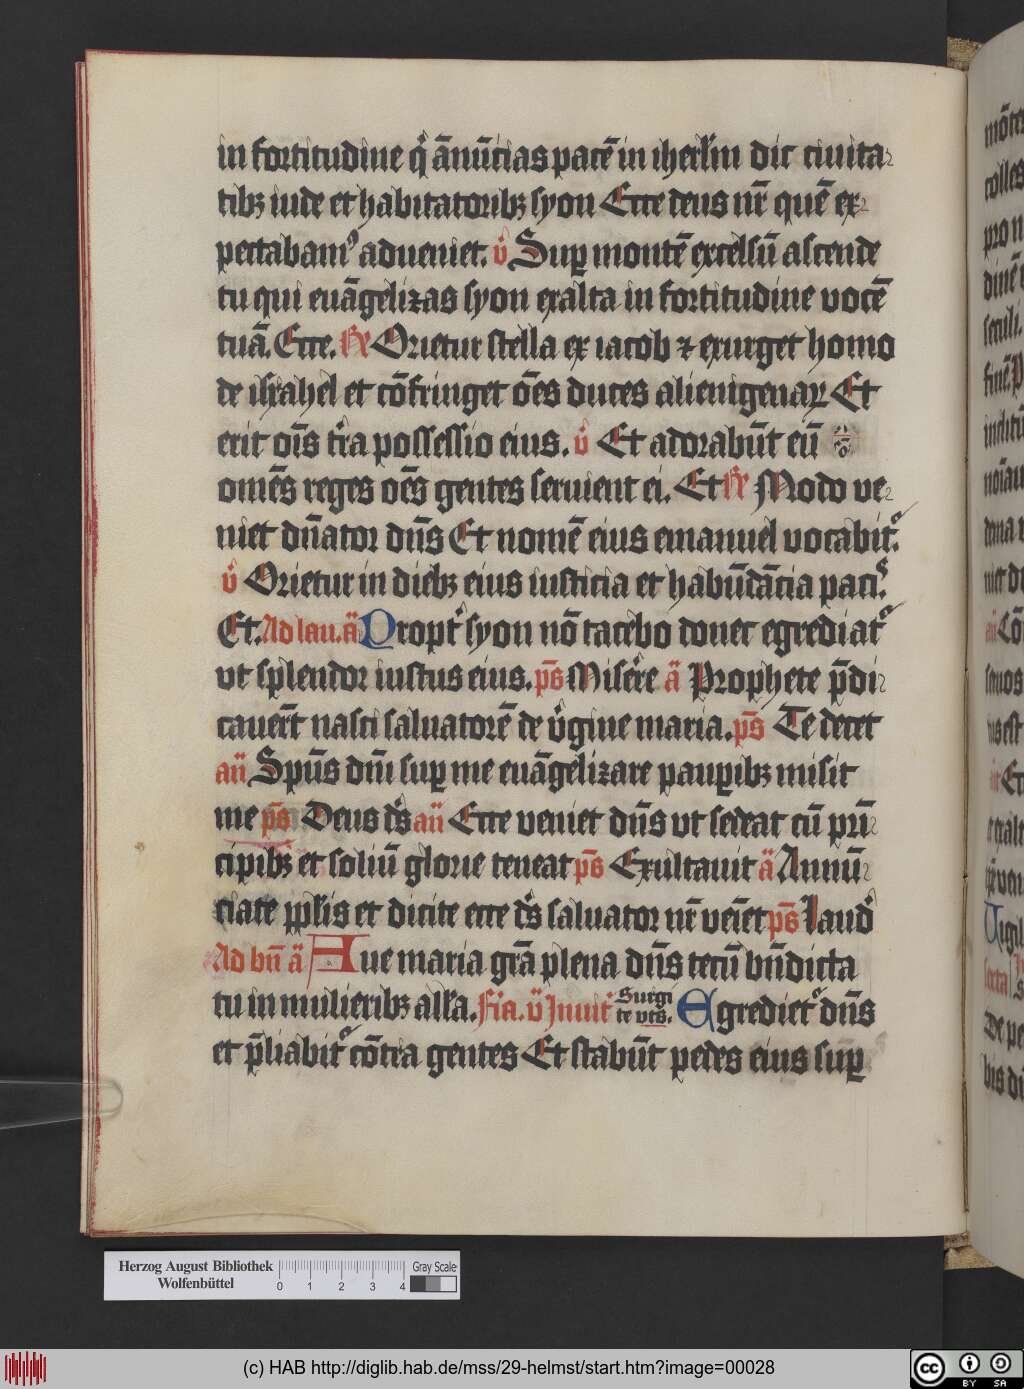 in fortitudine qͥ ānūcias pacē in iherl̄m dic ciuita
tibꝫ iude et habitatoribꝫ syon Ecce deus nr̄ quē ex
pectabamꝰ adueniet. v̇ Suꝑ montē excelsū ascende
tu qui euāgelizas syon exalta in fortitudine vocē
tuā. Ecce. ꝶ Orietur stella ex iacob ⁊ exurget homo
de israhel et cōfringet ōes duces alienigenaꝝ Et
erit oīs tr̄a possessio eius. v̇ Et adorabūt eū
omēs reges oēs gentes seruient ei. Et ꝶ Modo ve
niet dn̄ator dn̄s Et nomē eius emanuel vocabit᷑.
v̇ Orietur in diebꝫ eius iusticia et habūdācia pacis.
Et. Ad lau. ā Propt̄ syon nō tacebo donec egrediat᷑
vt splendor iustus eius. ps̄ Misēre ā Prophete p̄di
cauer̄t nasci saluatorē de v̇gine maria. ps̄ Te decet
an̄ Spūs dn̄i suꝑ me euāgelizare pauꝑibꝫ misit
me ps̄ Deus ds̄ an̄ Ecce veniet dn̄s vt sedeat cū pri̅
cipibꝫ et soliū glorie teneat ps̄ Exultauit ā Annū
ciate pp̄lis et dicite ecce ds̄ saluator nr̄ veīet ps̄ laud᷒
Ad bn̄ ā Aue maria gr̄a plena dn̄s tecū bn̄dicta
tu in mulieribꝫ all̄a. Fīa. v̄ Inuit᷑ Surgi
te vc̄ꝫ. Egrediet᷑ dn̄s
et p̄liabit᷑ cōtra gentes Et stabūt pedes eius suꝑ
Herzog August Bibliothek
Wolfenbüttel
0 1 2 3 4
Gray Scale
(c) HAB http://diglib.hab.de/mss/29-helmst/start.htm?image=00028
cc BY SA